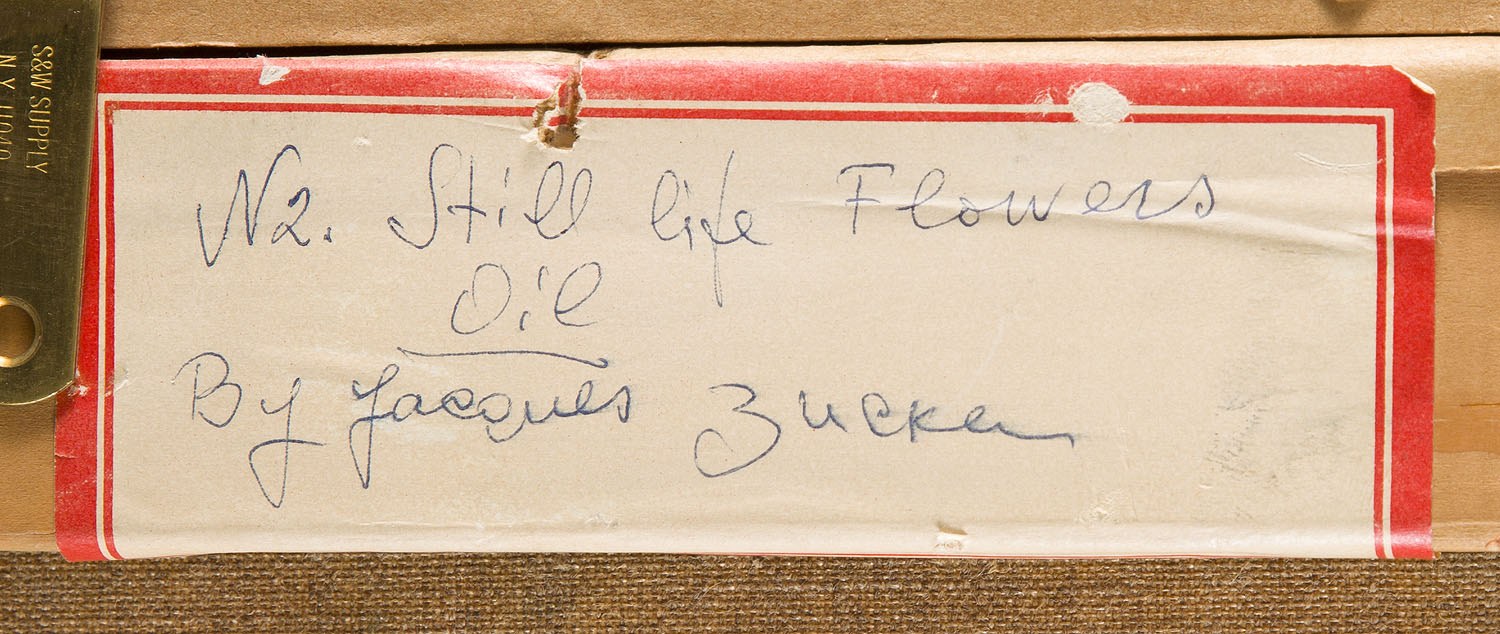 S&W SUPPLY
N.Y. 11040
N2. Still life Flowers
Oil
By Jacques Zucker